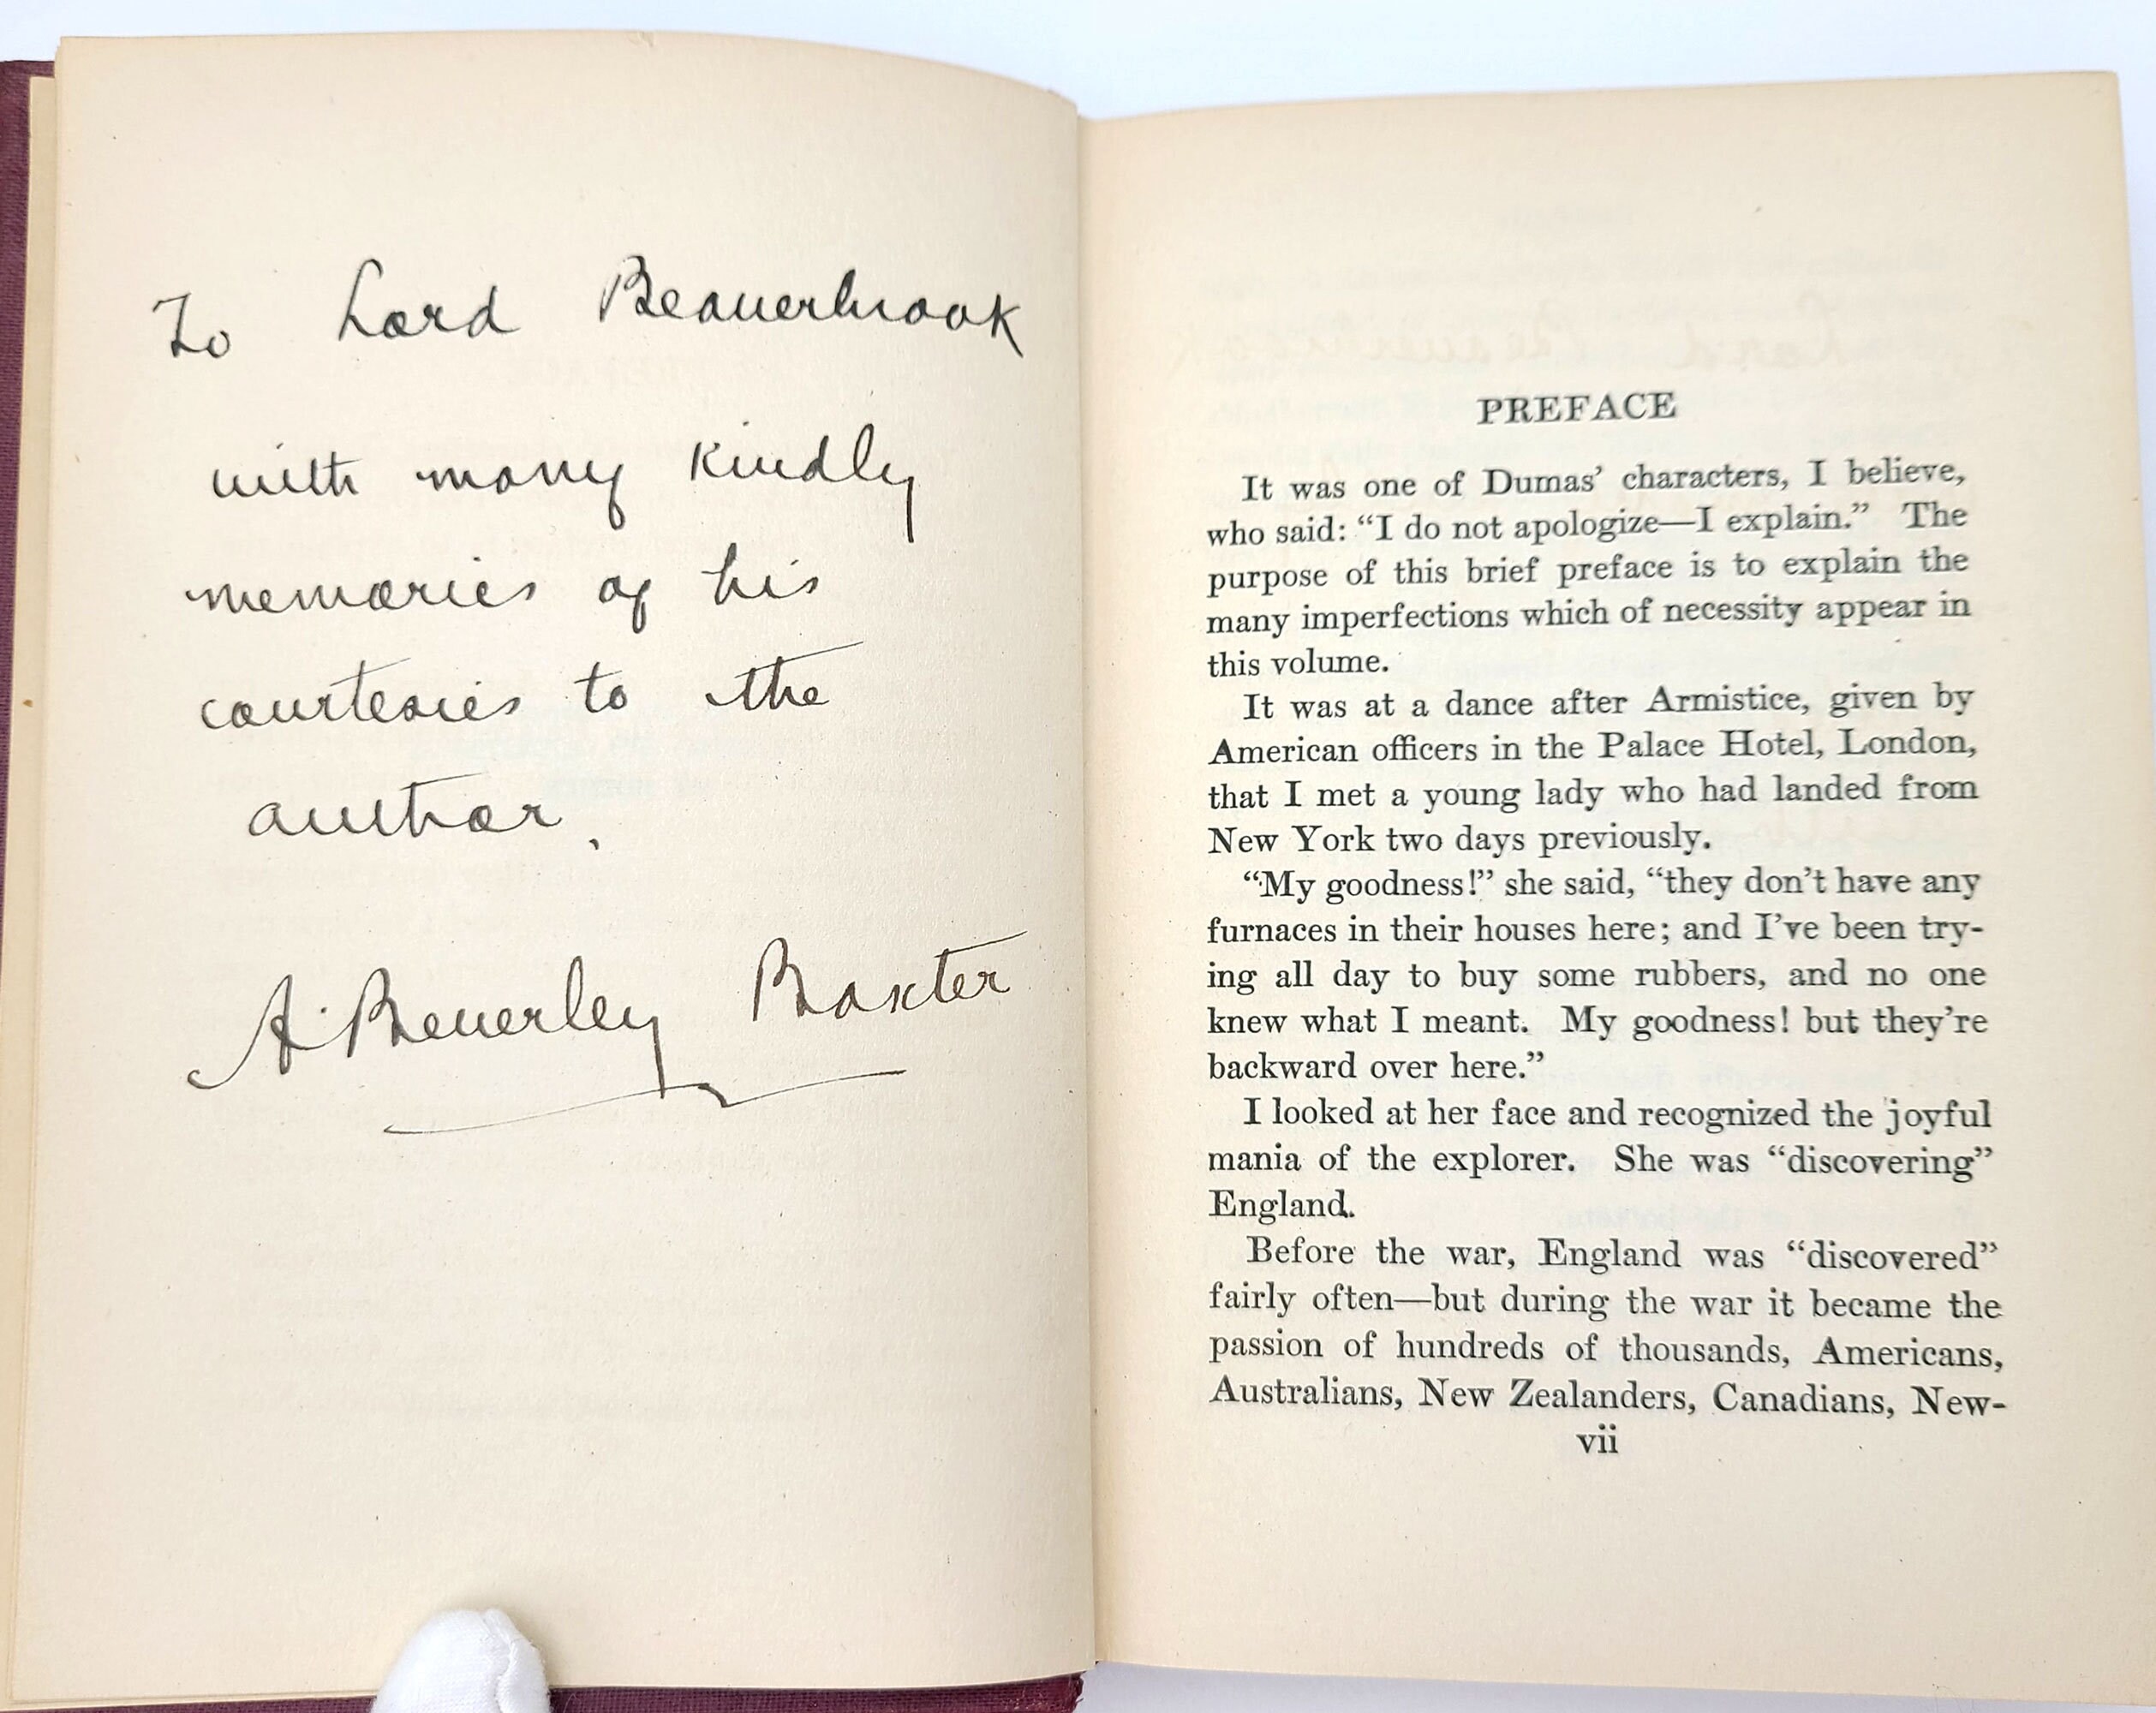 To Lord Beaverbrook
with many kindly
memories of his
courtesies to the
author.
A. Beverley Baxter
PREFACE
It was one of Dumas’ characters, I believe,
who said: “I do not apologize—I explain.” The
purpose of this brief preface is to explain the
many imperfections which of necessity appear in
this volume.
It was at a dance after Armistice, given by
American officers in the Palace Hotel, London,
that I met a young lady who had landed from
New York two days previously.
“My goodness!” she said, “they don’t have any
furnaces in their houses here; and I’ve been try-
ing all day to buy some rubbers, and no one
knew what I meant. My goodness! but they’re
backward over here.”
I looked at her face and recognized the joyful
mania of the explorer. She was “discovering”
England.
Before the war, England was “discovered”
fairly often—but during the war it became the
passion of hundreds of thousands, Americans,
Australians, New Zealanders, Canadians, New-
vii